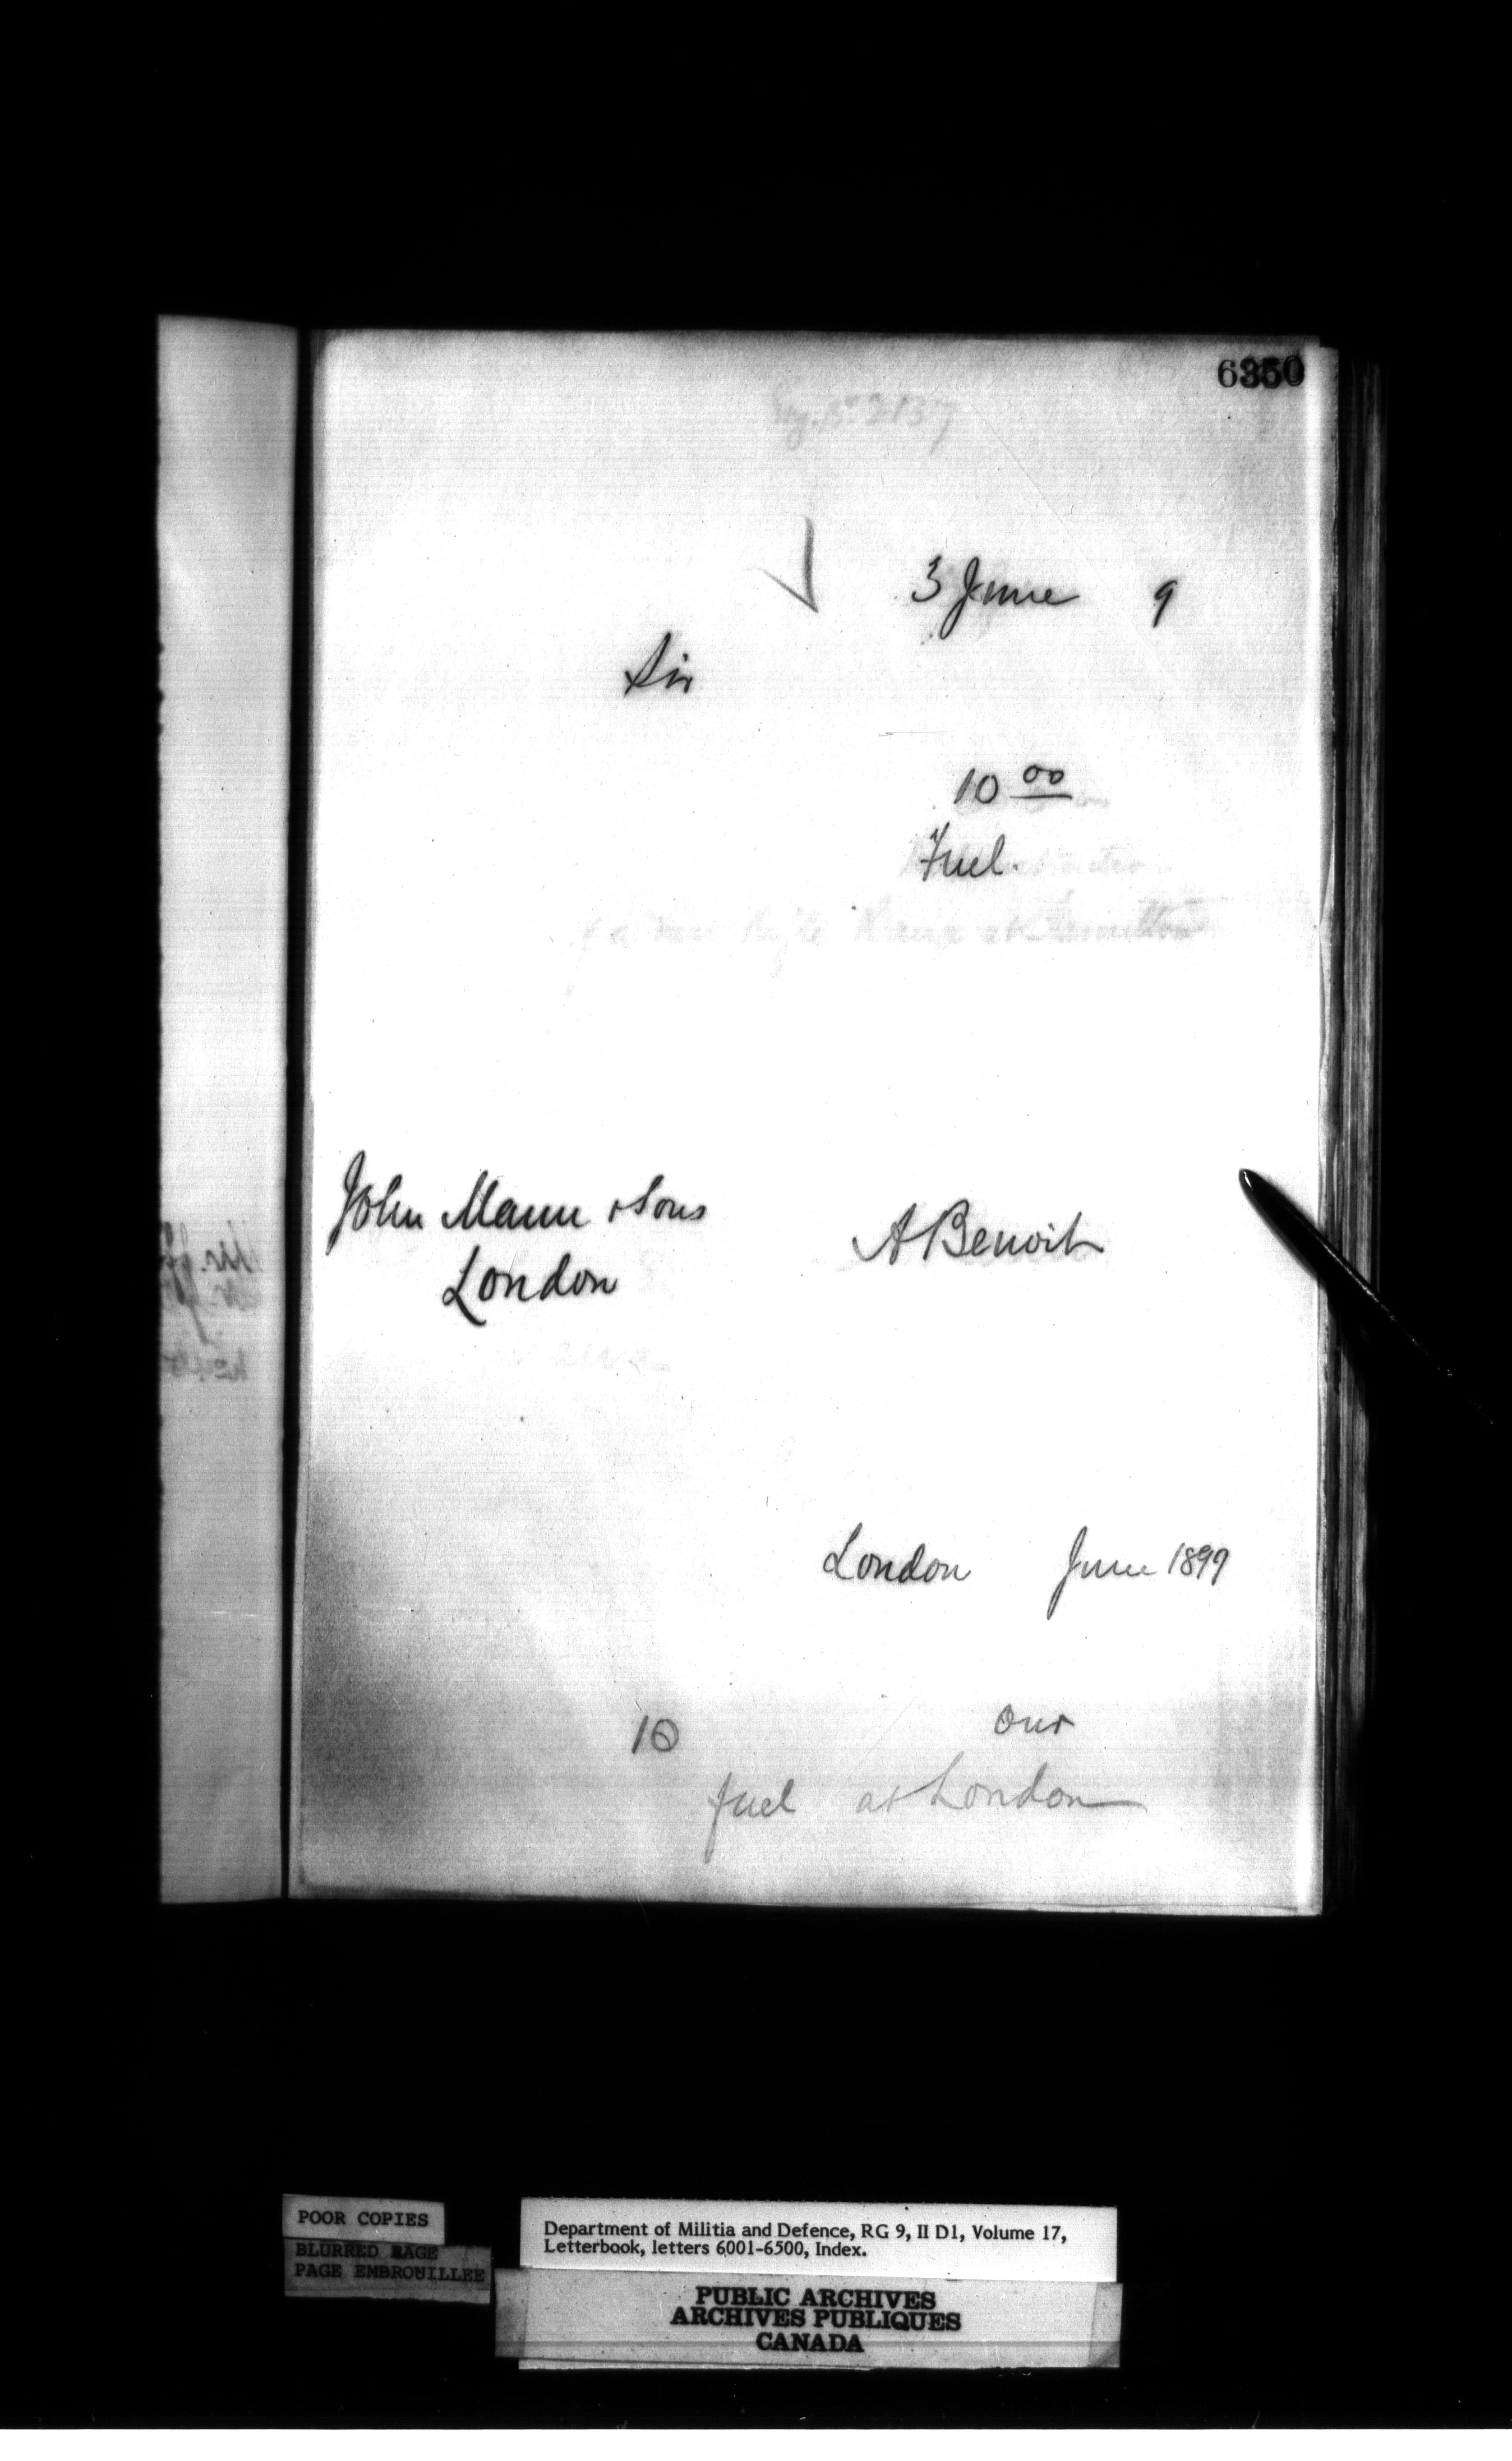 6350
3 June 9
Sir
10 00
Fuel.
of a new Rifle Range at Hamilton
John Mann & Sons
London
A Benoit
London June 1899
10 our
fuel at London
POOR COPIES
BLURRED PAGE
PAGE EMBROUILLEE
Department of Militia and Defence, RG 9, II D1, Volume 17,
Letterbook, letters 6001-6500, Index.
PUBLIC ARCHIVES
ARCHIVES PUBLIQUES
CANADA